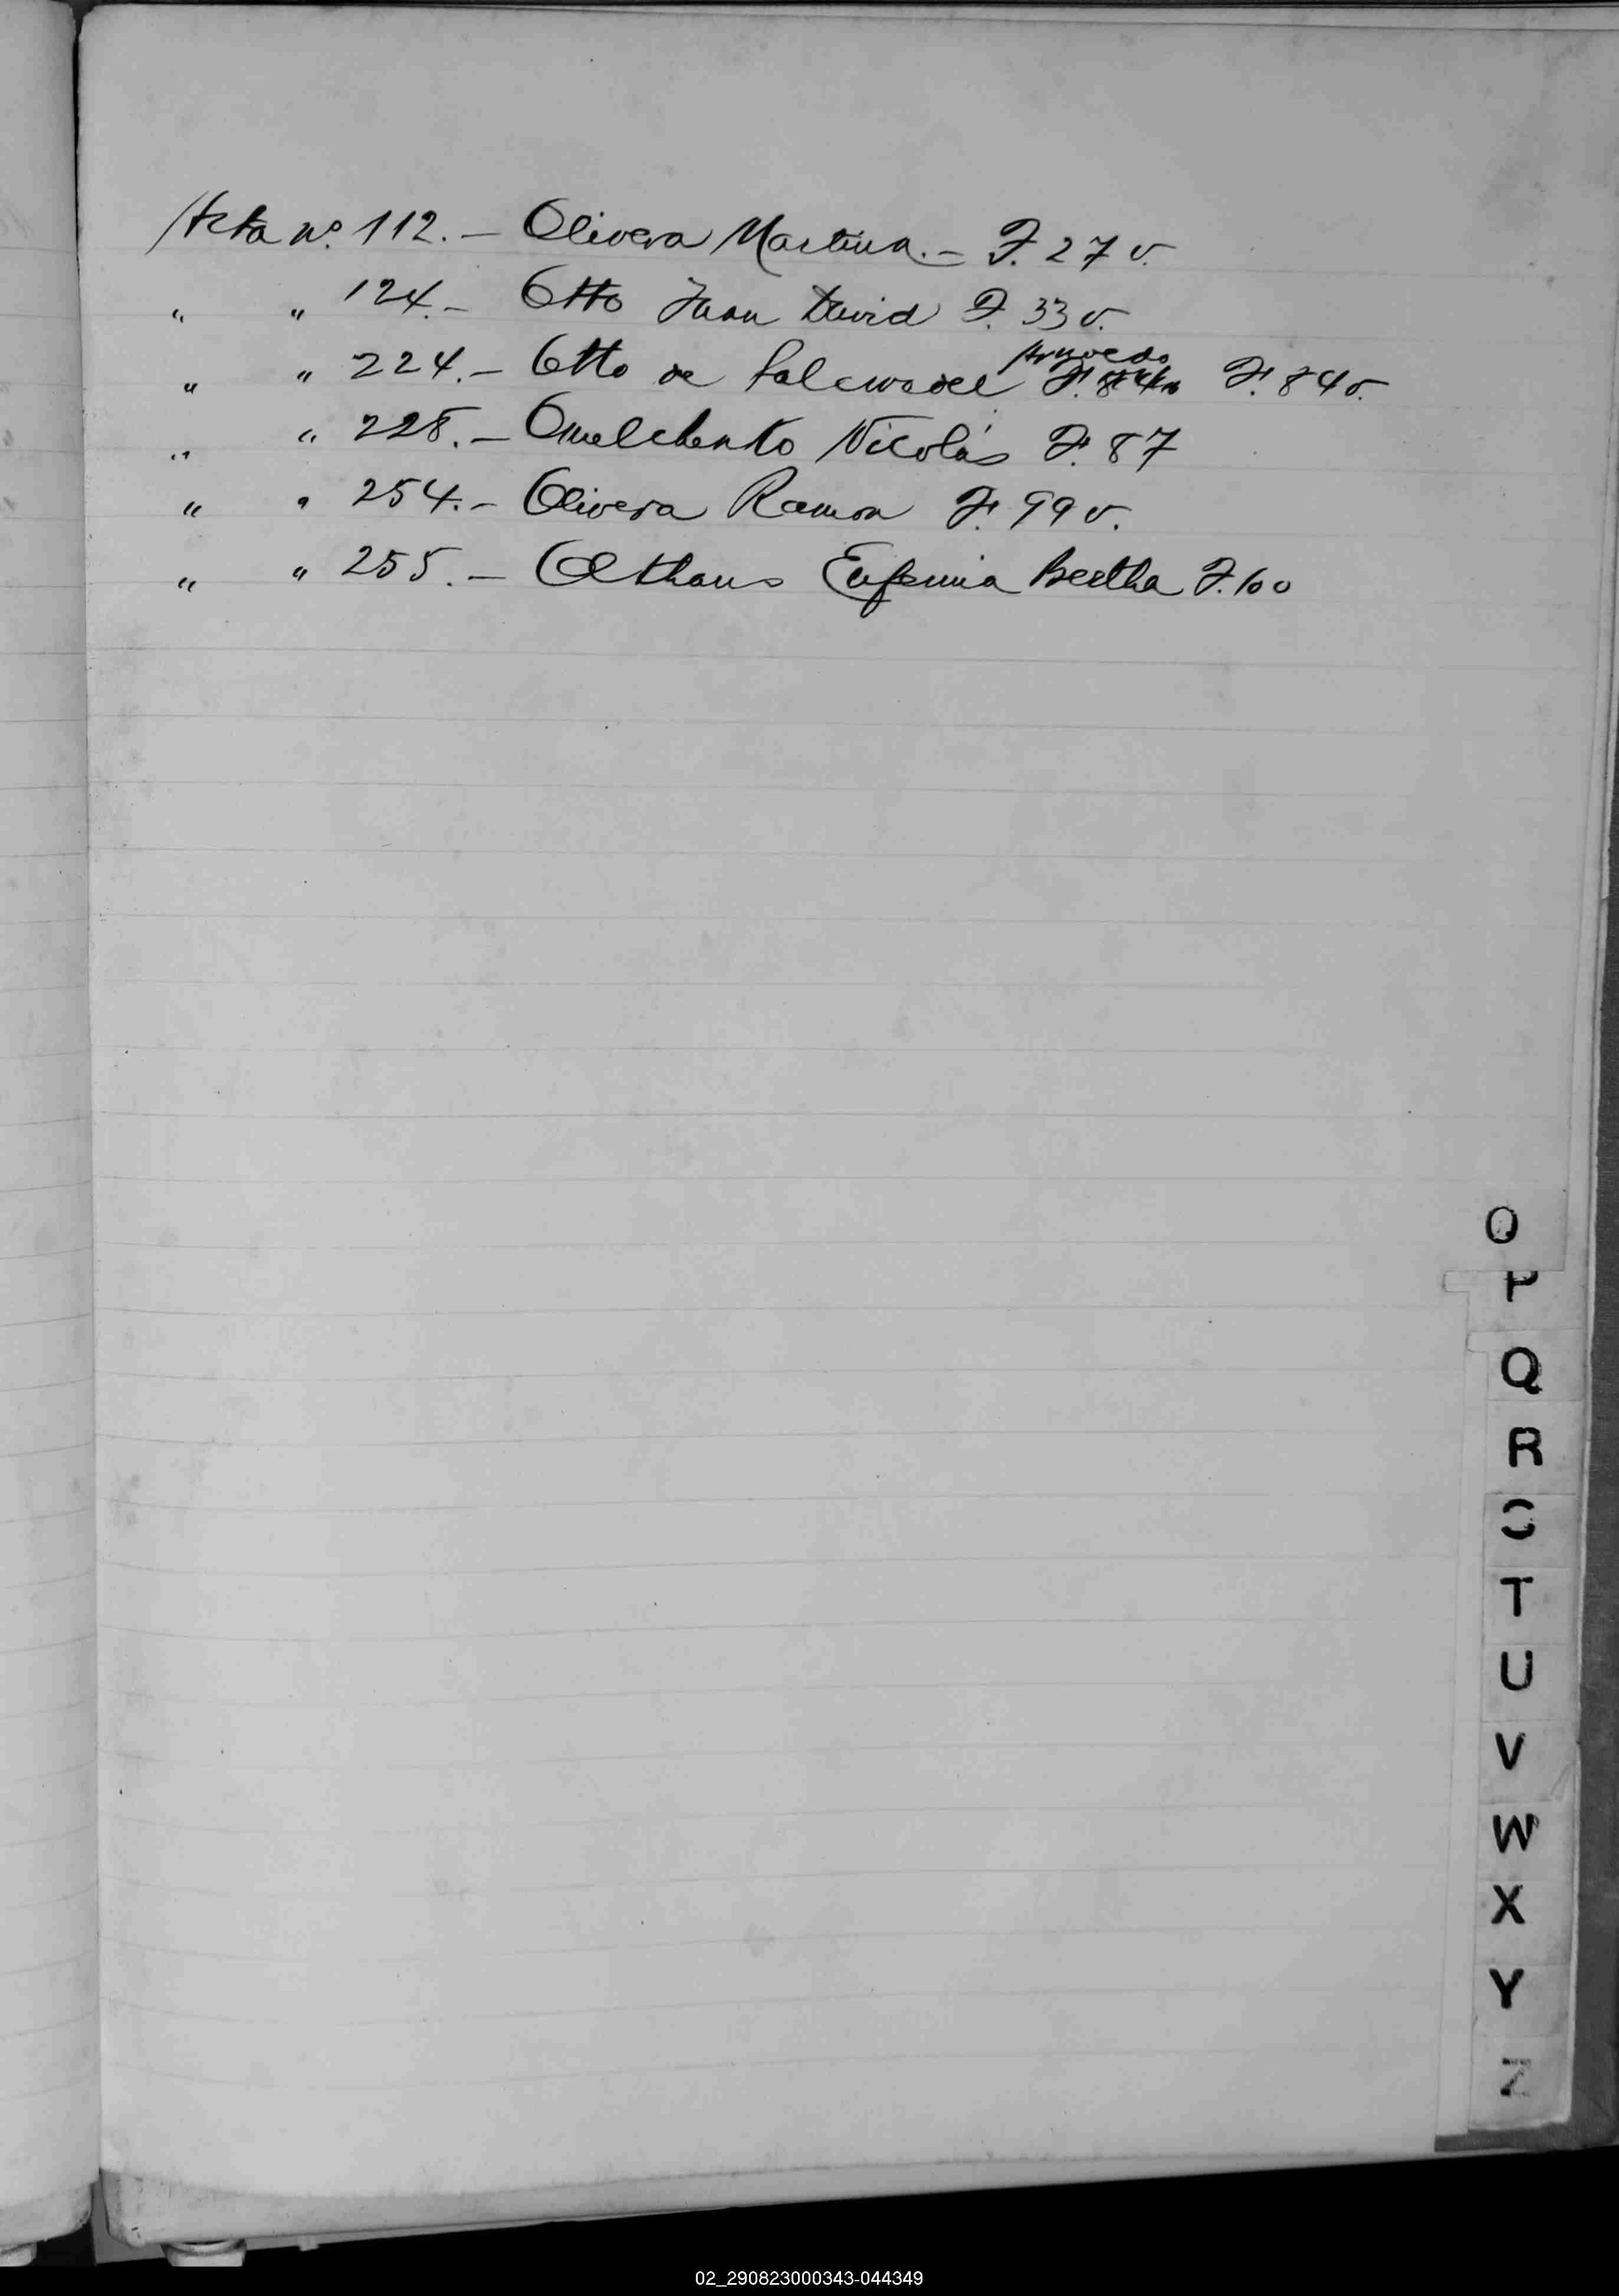 Acta nº 112. - Olivera Martina. - F. 27 v.
" " 124. - Otto Juan David F. 33 v.
" " 224. - Otto de F. 84 v.
" " 228. - Omelchenko Nicolás F. 87
" " 254. - Olivera Ramon F. 99 v.
" " 255. - Olthaus Eufemia Bertha F. 100
O
P
Q
R
S
T
U
V
W
X
Y
Z
02_290823000343-044349